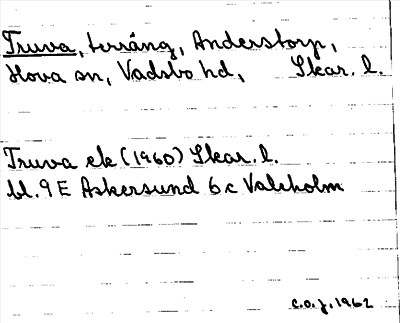 Truva, terräng, Anderstorp,
Hova sn, Vadsbo hd, Skar. l.
Truva ek (1960) Skar. l.
bl. 9 E Askersund 6 c Valeholm
C.O.J. 1962